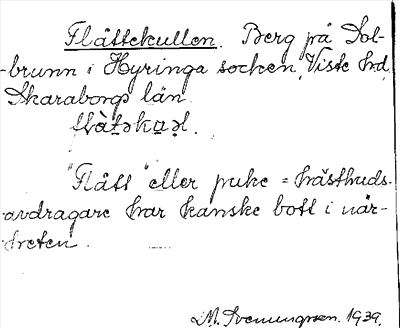 Flättekullen. Berg på Sol-
-brunn i Hyringa socken, Viste hrd,
Skaraborgs län.
"Flått" eller puke = hästhuds-
avdragare har kanske bott i när-
heten.
M. Svenungsson. 1939.